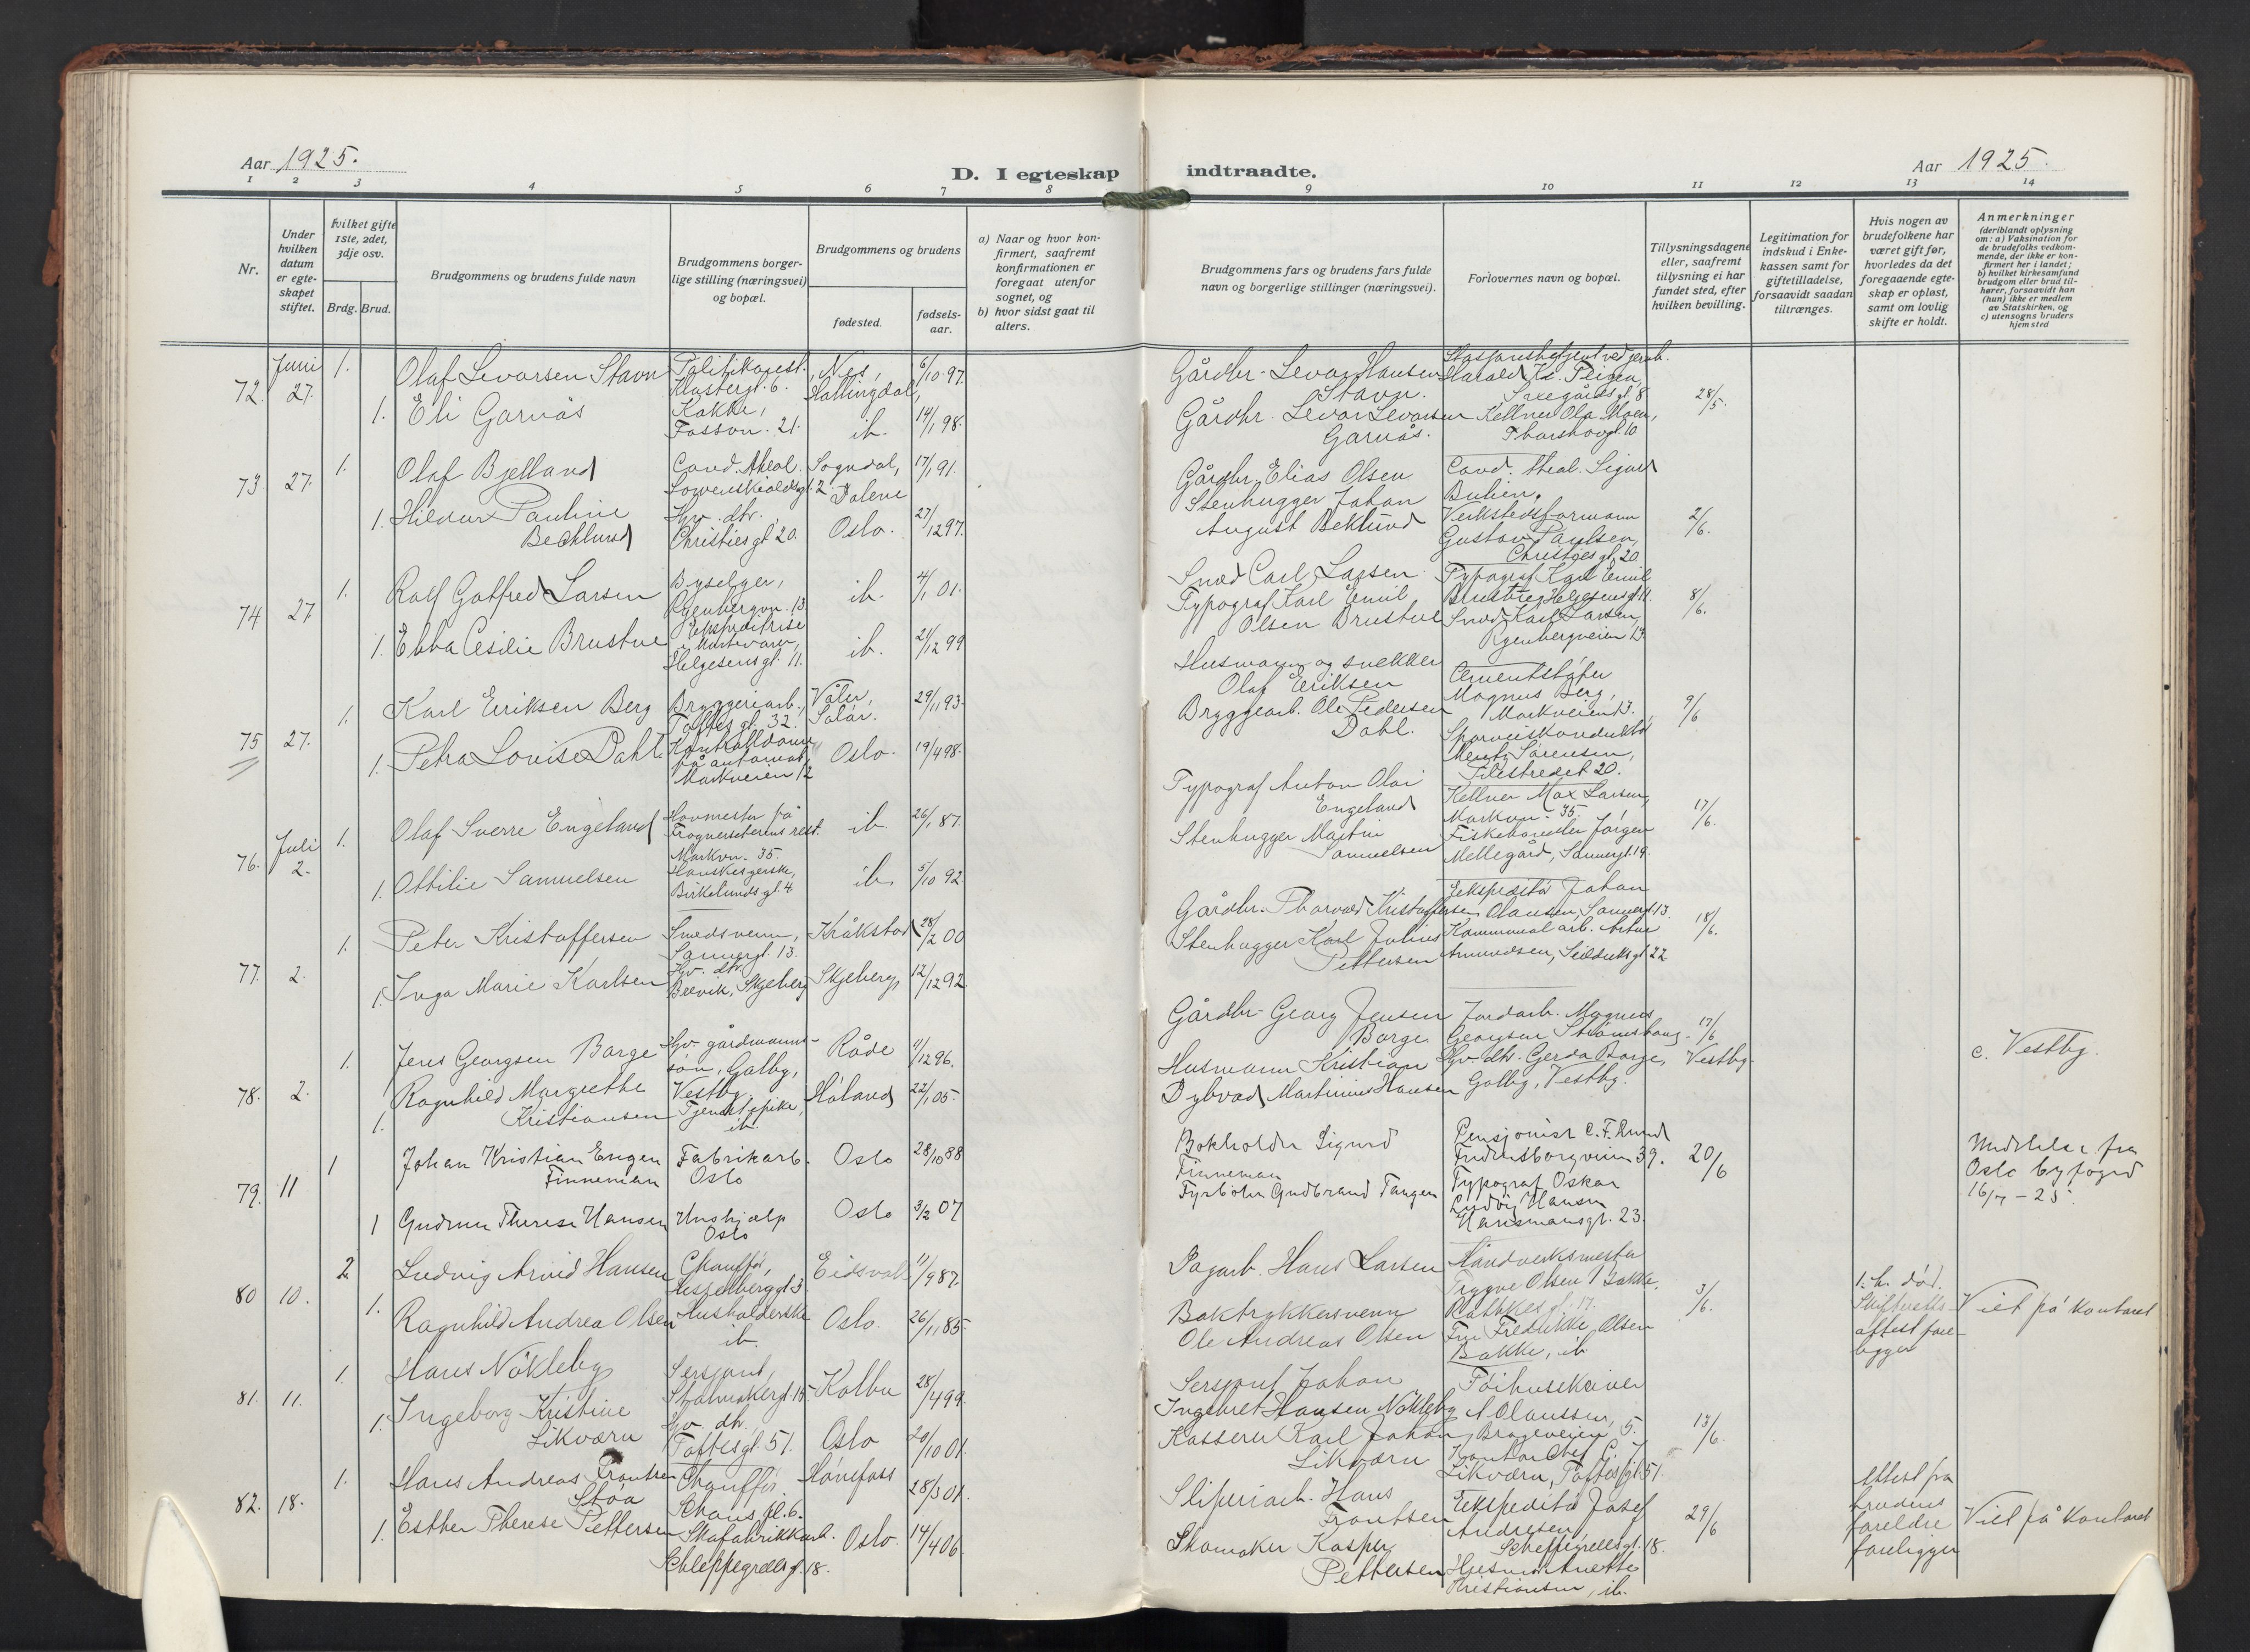 Aar 1925.
D. I egteskap indtraadte.
Aar 1925.
1 2 3 4 5 6 7 8 9 10 11 12 13 14
Nr.
Under hvilken datum er egteskapet stiftet.
hvilket gifte 1ste, 2det, 3dje osv.
Brdg. Brud.
Brudgommens og brudens fulde navn
Brudgommens borgerlige stilling (næringsvei) og bopæl.
Brudgommens og brudens
fødested.
fødselsaar.
a) Naar og hvor konfirmert, saafremt konfirmationen er foregaat utenfor sognet, og
b) hvor sidst gaat til alters.
Brudgommens fars og brudens fars fulde navn og borgerlige stillinger (næringsvei).
Forlovernes navn og bopæl.
Tillysningsdagene eller, saafremt tillysning ei har fundet sted, efter hvilken bevilling.
Legitimation for indskud i Enkekassen samt for giftetilladelse, forsaavidt saadan tiltrænges.
Hvis nogen av brudefolkene har været gift før, hvorledes da det foregaaende egteskap er opløst, samt om lovlig skifte er holdt.
Anmerkninger
(deriblandt oplysning om: a) Vaksination for de brudefolks vedkommende, der ikke er konfirmert her i landet;
b) hvilket kirkesamfund brudgom eller brud tilhører, forsaavidt han (hun) ikke er medlem av Statskirken, og
c) utensogns bruders hjemsted
72. Juni 27. 1. Olaf Levorsen Stavn Politikonst. Klostergt. 6. Nes, Hallingdal, 6/10 97.
Gårdbr. Levor Hansen Stavn.
Harald Kr.
28/5.
1. Eli Garnås Kokke, Fossvn. 21. ib. 14/1 98.
Gårdbr. Levor Levorsen Garnås.
Kellner Ola Moen, Thorshovgt. 10
73. 27. 1. Olaf Bjelland Cand. theol. Løvenskioldsgt. 2. Sogndal, Dalene 17/1 91.
Gårdbr. Elias Olsen
Cand. theol. Sigurd
2/6.
1. Hildur Pauline Becklund Hjv. dtr. Christiesgt. 20. Oslo. 27/12 97.
Stenhugger Johan August Beklund
Verkstedsformann Gustav Paulsen, Christiesgt. 20
74 27. 1. Rolf Gotfred Larsen Byselger, Ryenbergvn. 13. ib. 4/1 01.
Smed Carl Larsen
Typograf Karl Emil Brustue, Helgesensgt. 11.
8/6.
1. Ebba Cesilie Brustue Ekspeditrise Helgesens gt. 11. ib. 21/12 99
Typograf Karl Emil Olsen Brustue
Smed Karl Larsen, Ryenbergveien 13.
75 27. 1. Karl Eriksen Berg Bryggeriarb., Toftes gt. 32. Våler, Solør. 29/11 93.
Husmann og snekker Olaf Eriksen
Cementstøper Magnus Berg, Markveien 13.
9/6
1. Petra Lovise Dahl Kontrolldame på automat, Markveien 12 Oslo. 19/4 98.
Bryggearb. Ole Pedersen Dahl.
Sporveiskonduktør Sørensen, Pilestredet 20.
76. Juli 2. 1. Olaf Sverre Engeland Hovmester på Frognerseterens rest. Markvn. 35. ib 26/1 87.
Typograf Anton Olai Engeland
Kellner Max Larsen, Markvn. 35.
17/6.
1. Ottilie Samuelsen Hanskesyerske, Birkelunds gt. 4. ib. 5/10 92
Stenhugger Martin Samuelsen
Fiskehandler Jørgen Mellegård, Sannergt. 19.
77. 2. 1. Peter Kristoffersen Smedsvenn, Sannergt. 13. Kråkstad 28/2 00
Gårdbr. Thorvald Kristoffersen
Ekspeditør Johan Olausen, Sannergt. 13.
18/6.
1. Inga Marie Karlsen Hjv. dtr. Skjeberg Skjeberg 12/12 92
Stenhugger Karl Julius Pettersen
Kommunal arb. Amundsen, Seilduksgt. 22
78. 2. 1. Jens Georgsen Borge Hjv. gårdmanns-søn, Galby, Vestby Råde 11/12 96.
Gårdbr. Georg Jensen Borge
Jordarb. Magnus Georgsen
17/6 Vestby.
c. Vestby.
1. Ragnhild Margrethe Kristiansen Tjenestepike, ib. Høland 22/1 05.
Husmann Kristian Dybvad Martinius Hansen
Hjv. dtr. Gerda Borge, Galby, Vestby.
79. 11 1 Johan Kristian Engen Finneman Fabrikarb. Oslo Oslo 28/10 88
Bokholder Sigurd Finneman
Pensjonist C. F. Lund 39.
20/6
Meddelelse fra Oslo byfogd 16/7 - 25.
1 Gudrun Therese Hansen Hushjælp Oslo Oslo 3/2 07
Fyrbøter Gudbrand Tangen
Typograf Oskar Ludvig Hansen 23.
80 10. 2. Ludvig Arvid Hansen Chauffør, Eidsvoll 11/9 87.
Jagarb. Hans Larsen
Håndverksmester Trygve Olsen Bakke, Rathkes gt. 17.
3/6.
1. h. død. Skifteretts-attest fore-ligger
Viet på kontoret
1. Ragnhild Andrea Olsen Husholderske ib. Oslo. 26/11 85.
Boktrykkersvenn Ole Andreas Olsen
Fru Fredrikke Olsen Bakke, ib
81. 11. 1. Hans Nökleby Sersjant, Kolbu 28/4 99
Sersjant Johan Ingebret Hansen Nökleby
A. Olaussen, Brageveien 5.
13/6.
1. Ingeborg Kristine Likværn Hjv. dtr. Toftesgt. 51. Oslo 29/10 01.
Kasserer Karl Johan Likværn
Kontorchef C. J. Likværn, Toftesgt. 51.
82. 18. 1. Hans Andreas Frantsen Støa Chauffør Schous pl. 6. Hönefoss 28/3 01.
Sliperiarb. Hans Frantsen
Ekspeditør Josef Andresen, Schleppegrellsgt. 18.
29/6
Attest fra brudens foreldre foreligger
Viet på kontoret
1. Esther Therese Pettersen Skofabrikkarb. Schleppegrellsgt. 18. Oslo. 14/4 06.
Skomaker Kasper Pettersen
Anette Kristiansen, ib.